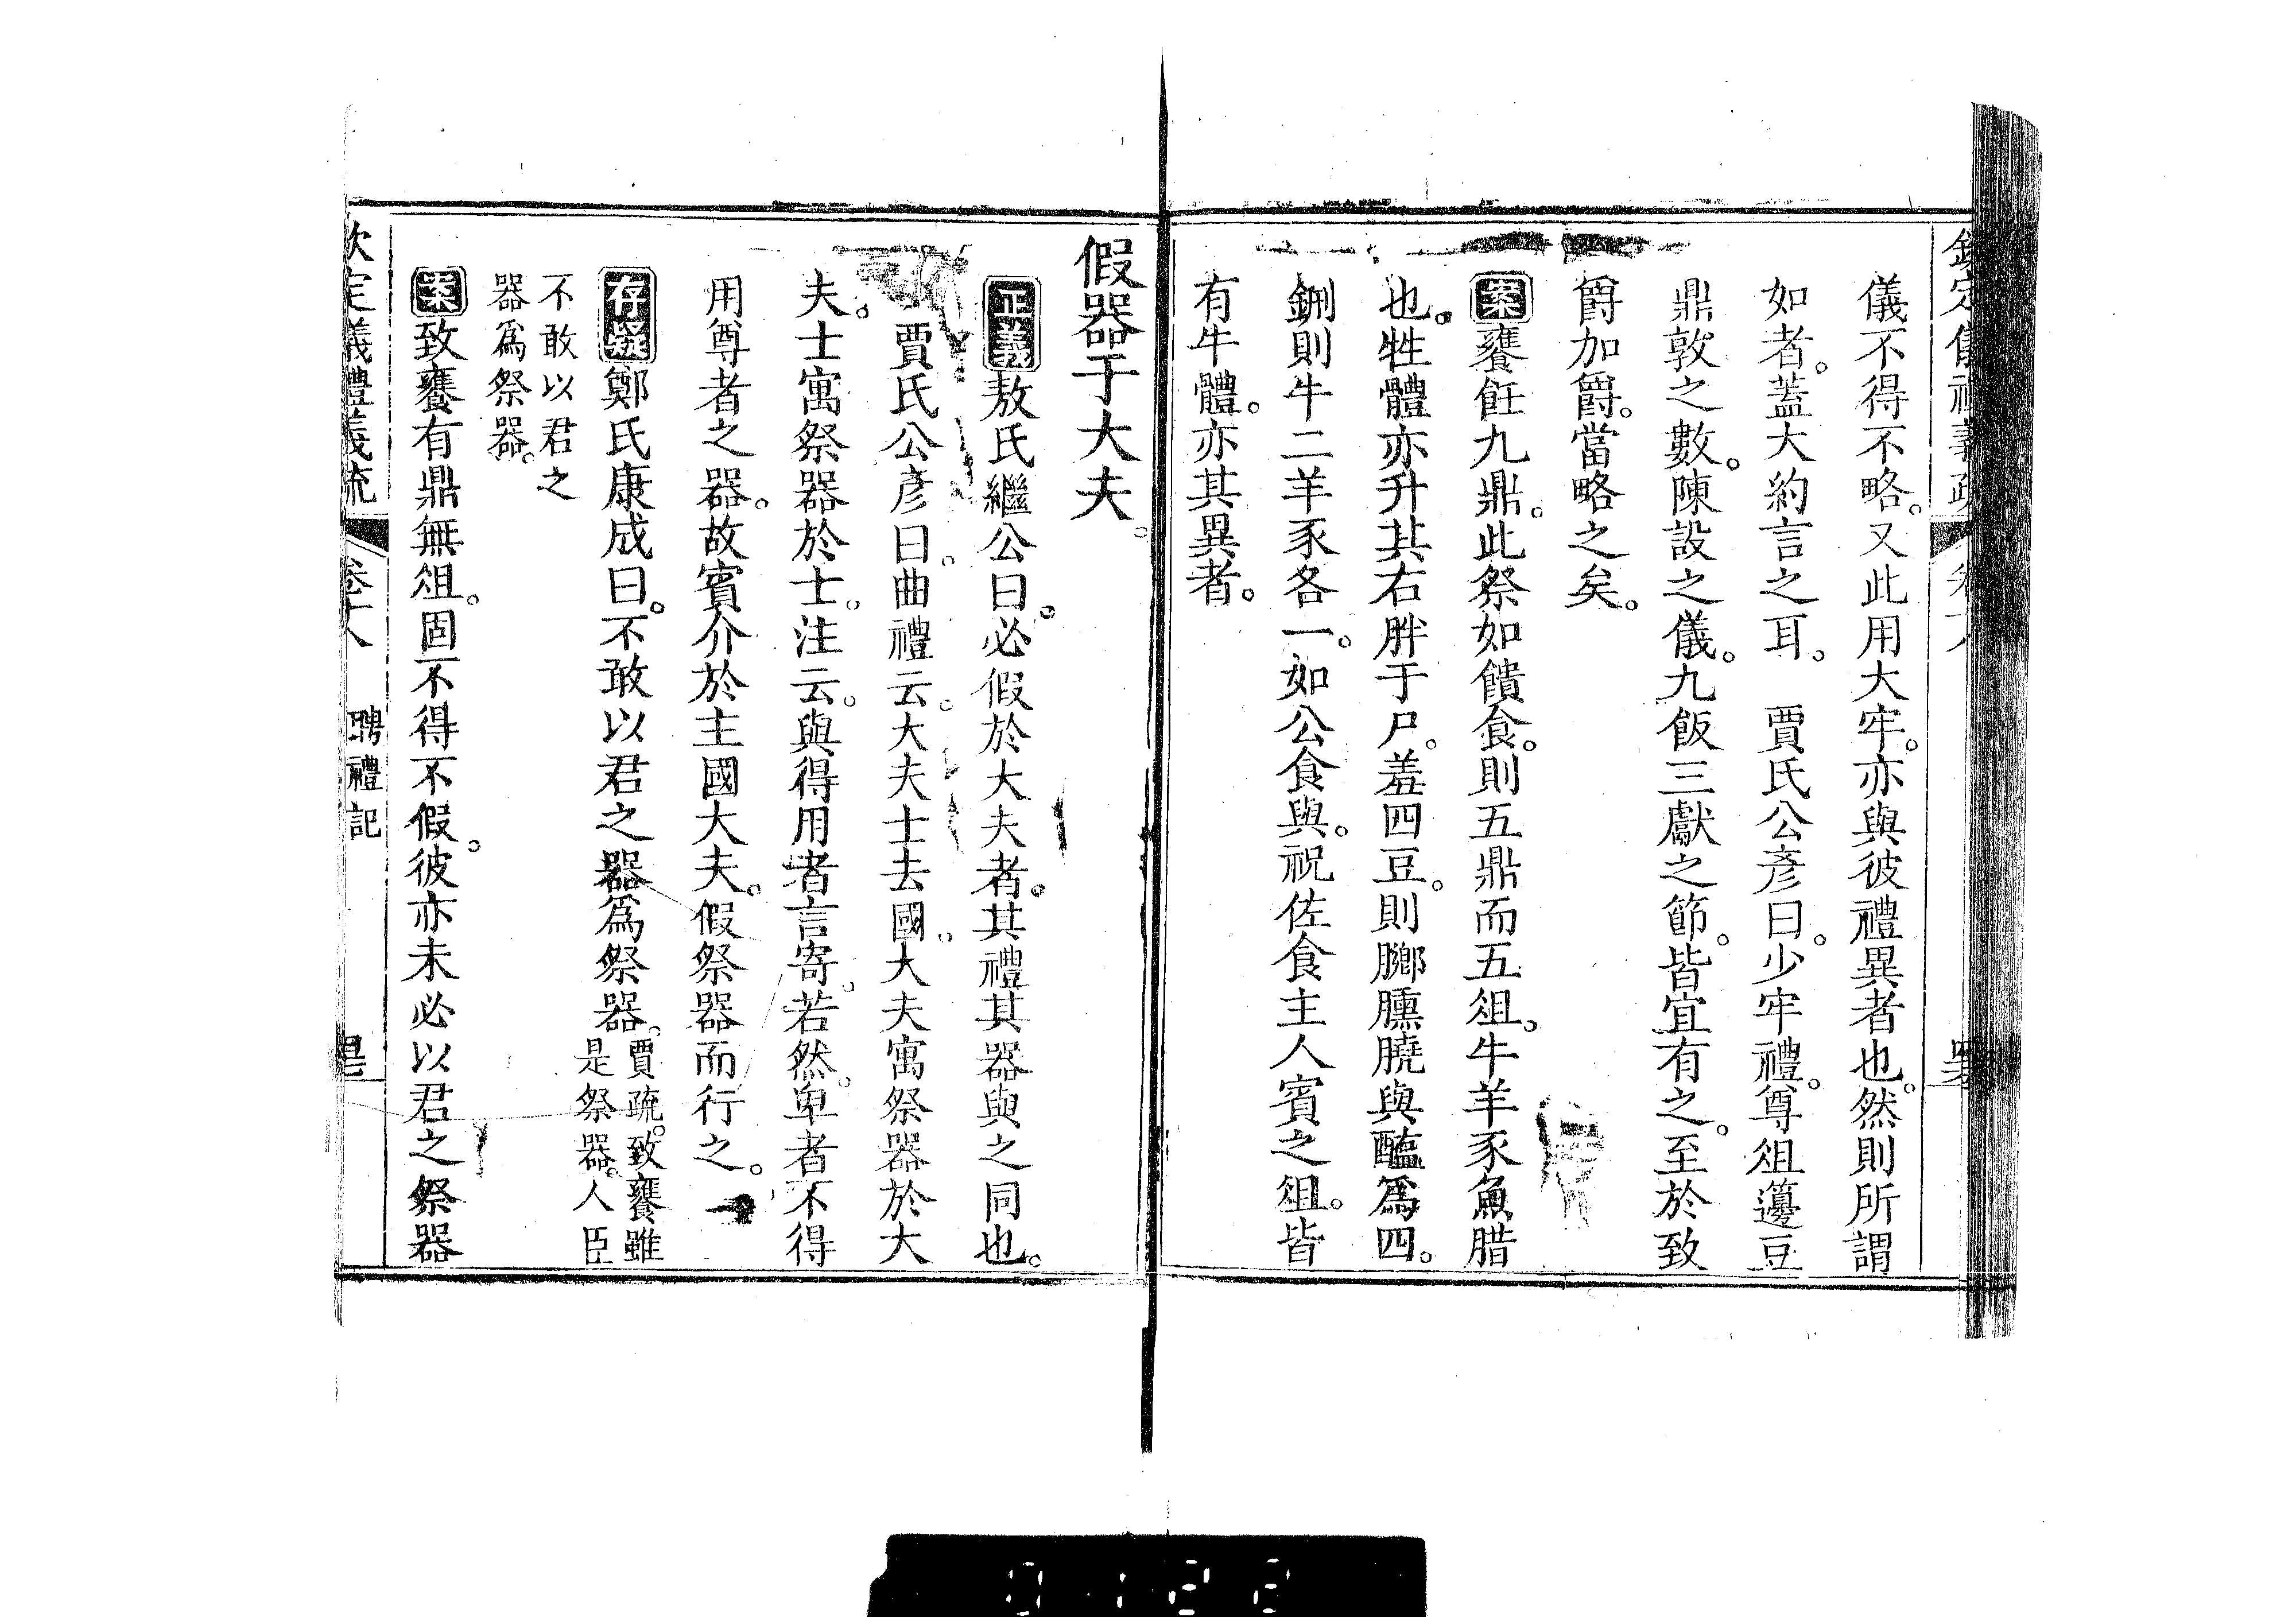 儀不得不略。又此用大牢。亦與彼禮異者也。然則所謂
如者。蓋大約言之耳。賈氏公彥曰。少牢禮。尊俎籩豆
鼎敦之數。陳設之儀。九飯三獻之節。皆宜有之。至於致
爵加爵。當略之矣。
案饔飪九鼎。此祭如饋食。則五鼎而五俎。牛羊豕魚腊
也。牲體亦升其右胖于尸。羞四豆。則膷臐膮與醢爲四。
鉶則牛二羊豕各一。如公食與。祝佐食主人賓之俎。皆
有牛體。亦其異者。
假器于大夫。
正義敖氏繼公曰。必假於大夫者。其禮其器與之同也。
賈氏公彥曰。曲禮云。大夫士去國。大夫寓祭器於大
夫。士寓祭器於士。注云。與得用者言寄。若然。卑者不得
用尊者之器。故賓介於主國大夫。假祭器而行之。
存疑鄭氏康成曰。不敢以君之器爲祭器。賈疏。致饔雖
是祭器。人臣
不敢以君之
器爲祭器。
案致饔有鼎無俎。固不得不假。彼亦未必以君之祭器
欽定儀禮義疏 卷十八 聘禮記